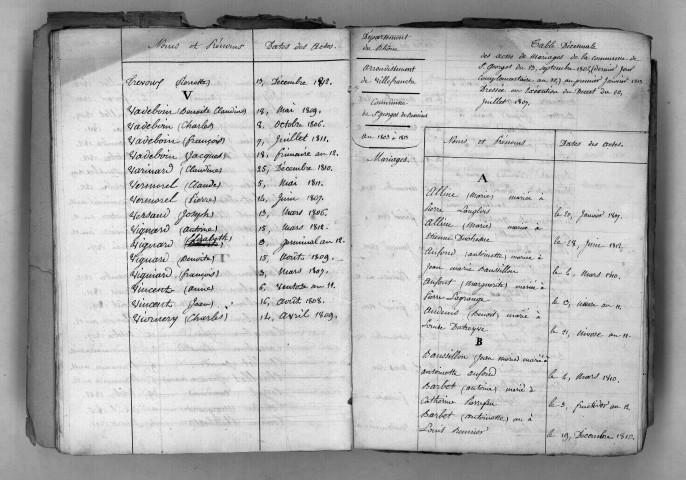 Noms et Prénoms Dates des Actes.
Trevoux (Pierrette) 13, Décembre 1812.
V
Vadeboin (Benoite Claudine) 18, Mai 1809.
Vadeboin (Charles) 8, Octobre 1806.
Vadeboin (françois) 9, Juillet 1811.
Vadeboin (Jacques) 18, frimaire an 12.
Varinard (Claudine) 25, Décembre 1810.
Vermorel (Claude) 5, Mai 1811.
Vermorel (Pierre) 14, Juin 1807.
Versaud (Joseph) 13, Mars 1806.
Vignard (Antoine) 15, Mars 1812.
Vignard (Elisabeth) 3, germinal an 12.
Viguard (Benoite) 15, Août 1809.
Viguiard (françois) 3, Mars 1807.
Vincent (anne) 6, Ventose an 11.
Vincent (Jean) 16, Août 1808.
Viornery (Charles) 14, Avril 1809.
Département
du Rhône
Arrondissement
de Villefranche
Commune
de St georges de reneins
an 1803 à 1813
Mariages.
Table Décennale
des actes de Mariages de la commune de
St georges du 23, septembre 1802, (dernier Jour
Complementaire an 10,) au premier Janvier 1813
Dressée en Exécution du Decret du 20,
Juillet 1807.
Noms et Prénoms Dates des actes.
A
Alline (Marie) mariée à
pierre Langlois le 20, Janvier 1807.
Alline (Marie) mariée à
Etienne Duchesne le 28, Juin 1812.
Aufond (antoinette) mariée à
Jean marie Baussillon le 4, Mars 1810.
Aufont (Marguerite) mariée à
Pierre Lagrange an 11.
(Benoit) marié à
Louise le 21, Nivose an 11.
B
Baussillon (Jean Marie) marié à
antoinette aufond le 4, Mars 1810.
Barbet (antoine) marié à
Catherine le 3, fructidor an 12.
Barbet (antoinette) à
Louis le 19, Décembre 1810.